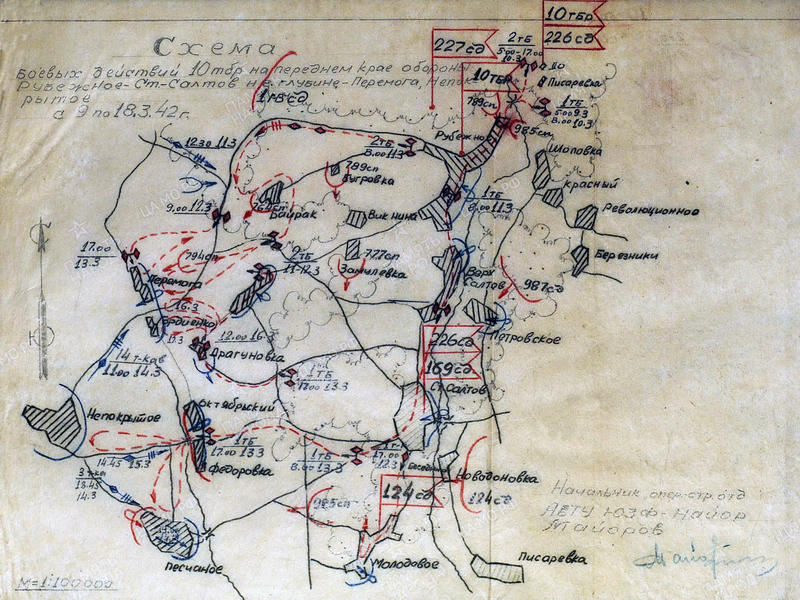 10 тбр
226 сд
Схема
227 сд
2 тБ
5.00-17.00
10.3
Боевых действий 10 тбр на переднем крае обороны
Рубежное-Ст-Салтов и в глубине-Перемога, Непок-
рытое
с 9 по 18.3.42 г.
1 гв сд
10 тбр
Писаревка
789 сп
1 тБ
5-00 9.3
8.00 10.3
985 сп
Рубежно
12.30 11.3
2 тБ
8.00 11.3
Шоповка
789 сп
Бугровка
Красный
1 тБ
8.00 11.3
9.00 11.3
Байрак
Викнина
Революционное
17.00
13.3
794 сп
2 тБ
11-12.3
777 сп
Замулевка
Верх
Салтов
987 сд
Березники
Перемога
16.3
Гордиенко
Петровское
С
Ю
12.00 16.3
Драгуновка
226 сд
14 т-ков
11.00 14.3
169 сд
1 тБ
17.00 13.3
Ст Салтов
Непокрытое
Октябрьский
1 тБ
17.00 13.3
1 тБ
8.00 13.3
17.00
12.3
14.45 15.3
Федоровка
18.45
14.3
124 сд
Новодоновка
124 сд
985 сп
Начальник опер-стр. отд
АБТУ ЮЗФ-Майор
Майоров
Песчаное
Молодовое
Писаревка
М=1:100000